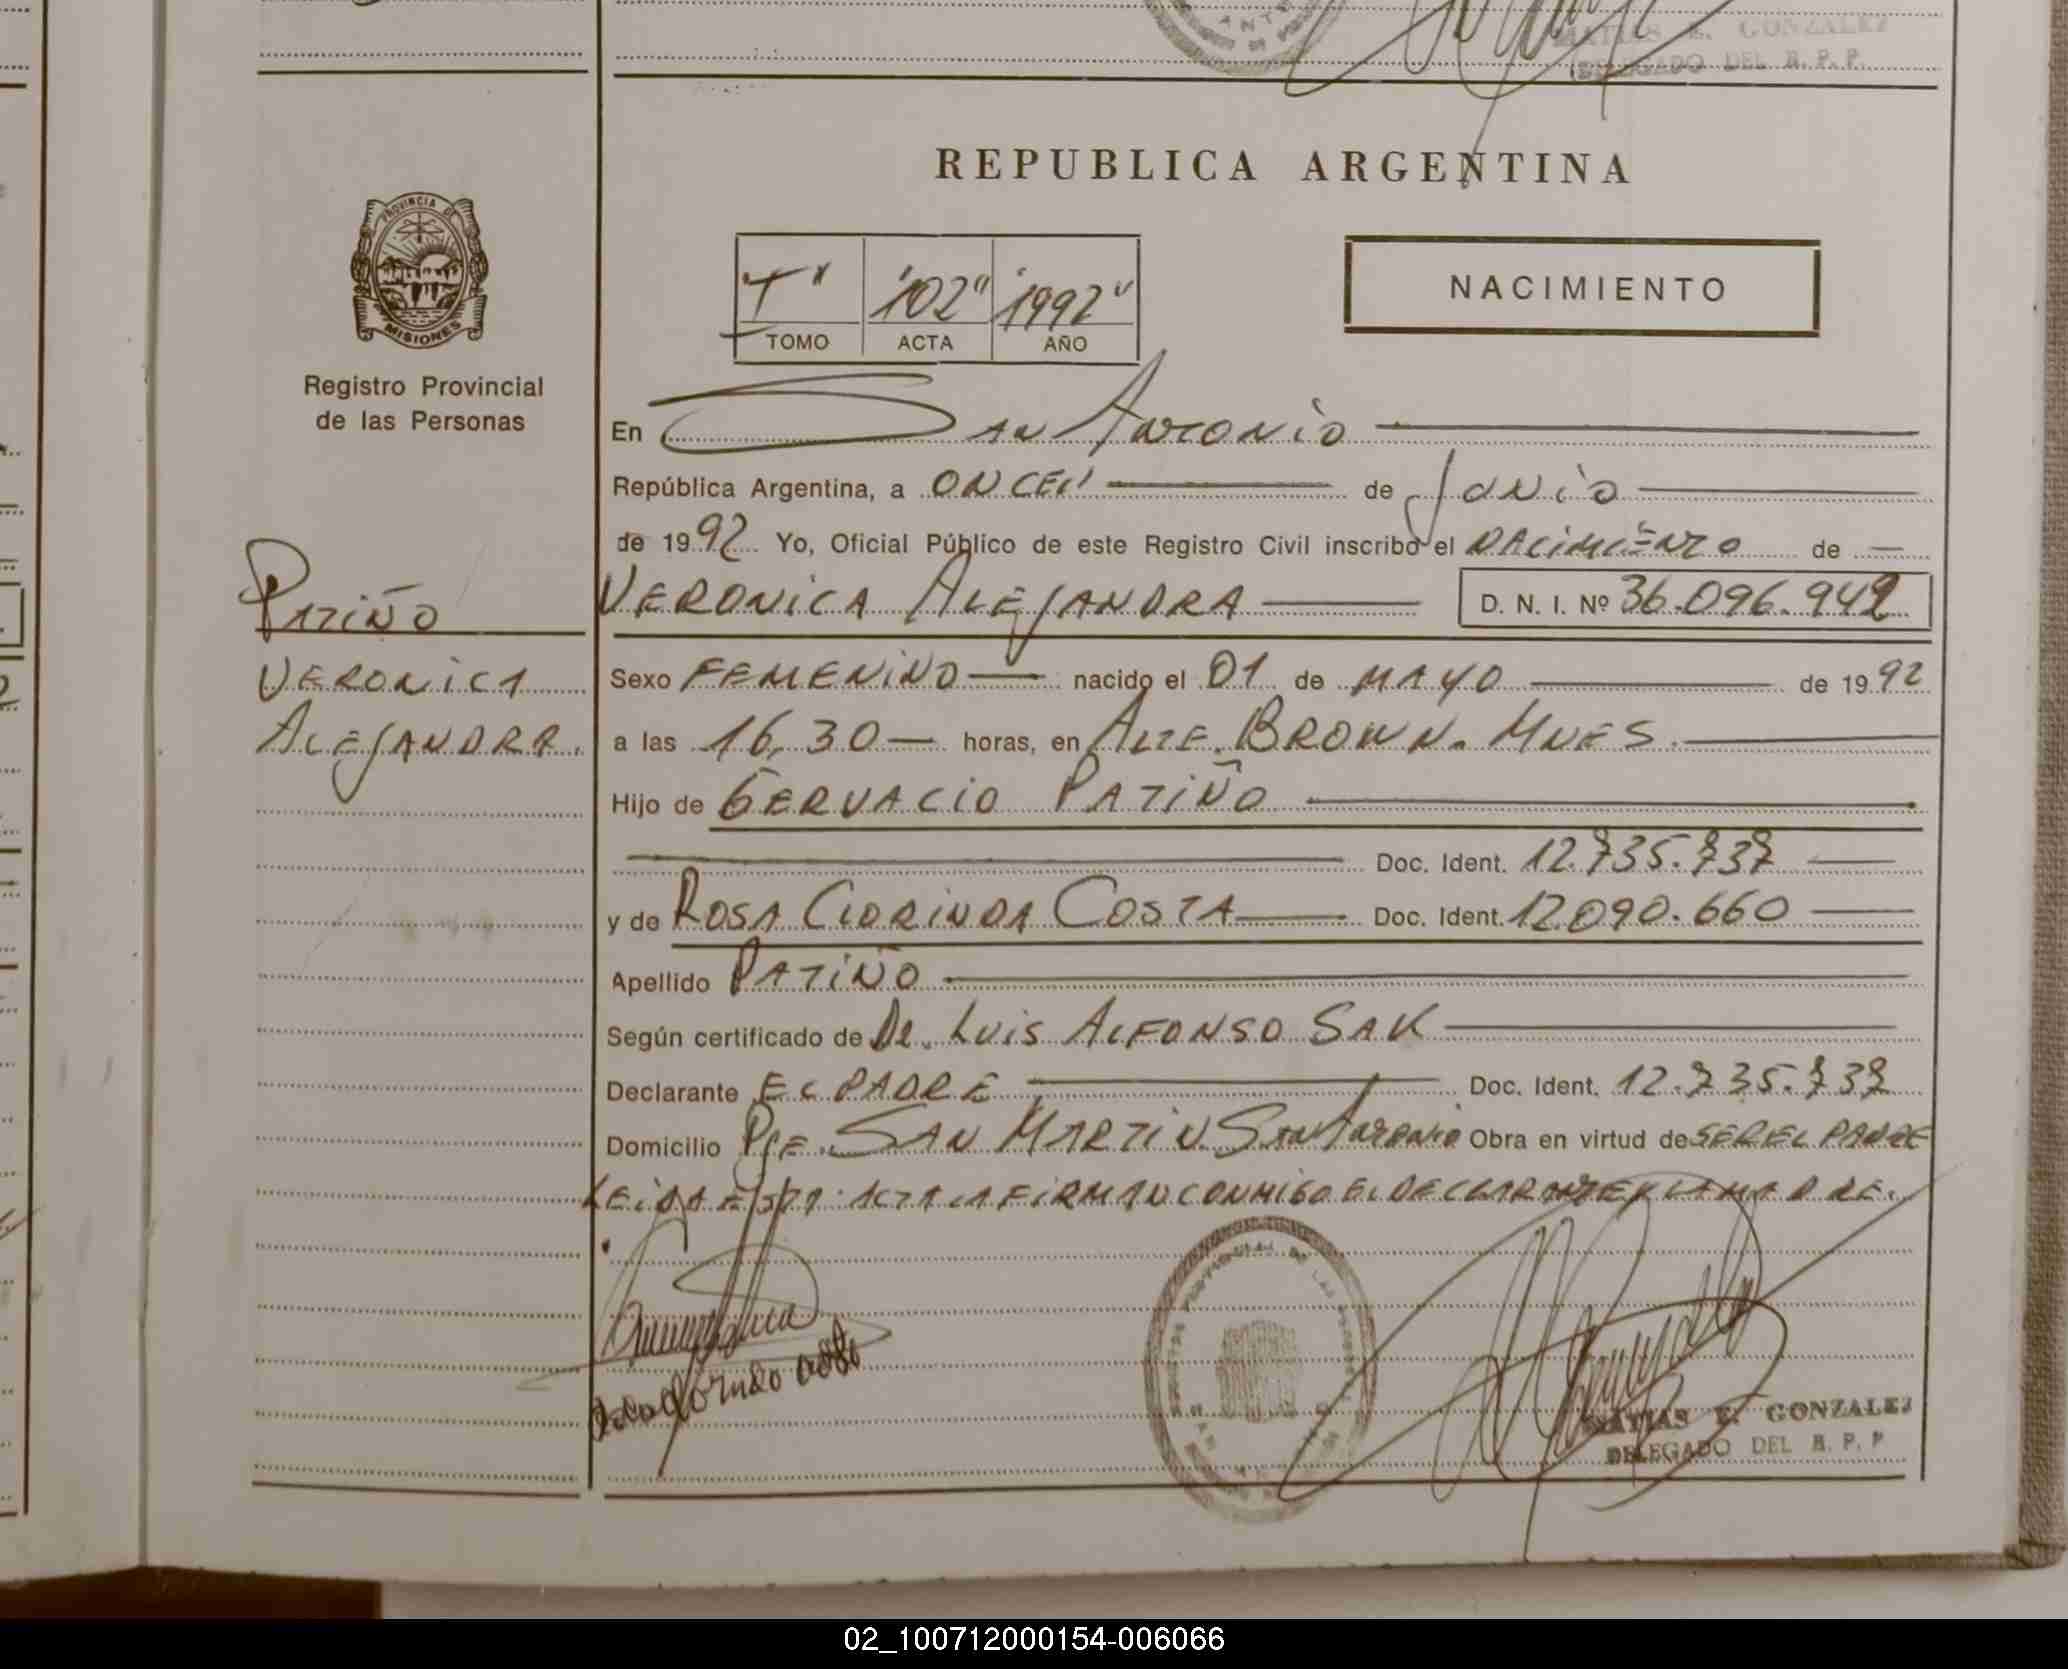 MATIAS E. GONZALEZ
DELEGADO DEL R. P. P.
REPUBLICA ARGENTINA
PROVINCIA DE
MISIONES
Registro Provincial
de las Personas
T" "102" "1992"
TOMO ACTA AÑO
NACIMIENTO
En San Antonio
República Argentina, a ONCE" de Junio
de 1992 Yo, Oficial Público de este Registro Civil inscribo el NACIMIENTO de
VERONICA ALEJANDRA D. N. I. Nº 36.096.942
PATIÑO
VERONICA
ALEJANDRA.
Sexo FEMENINO nacido el 01 de MAYO de 1992
a las 16,30 horas, en ALTE. BROWN. MNES.
Hijo de GERVACIO PATIÑO
Doc. Ident. 12.735.737
y de ROSA CLORINDA COSTA Doc. Ident. 12.090.660
Apellido PATIÑO
Según certificado de DR. LUIS ALFONSO SAK
Declarante EL PADRE Doc. Ident. 12.735.737
Domicilio PJE. SAN MARTIN SAN ANTONIO Obra en virtud de SER EL PADRE
LEIDA ESTA ACTA LA FIRMAN CONMIGO EL DECLARANTE Y LA MADRE.
MATIAS E. GONZALEZ
DELEGADO DEL R. P. P
02_100712000154-006066